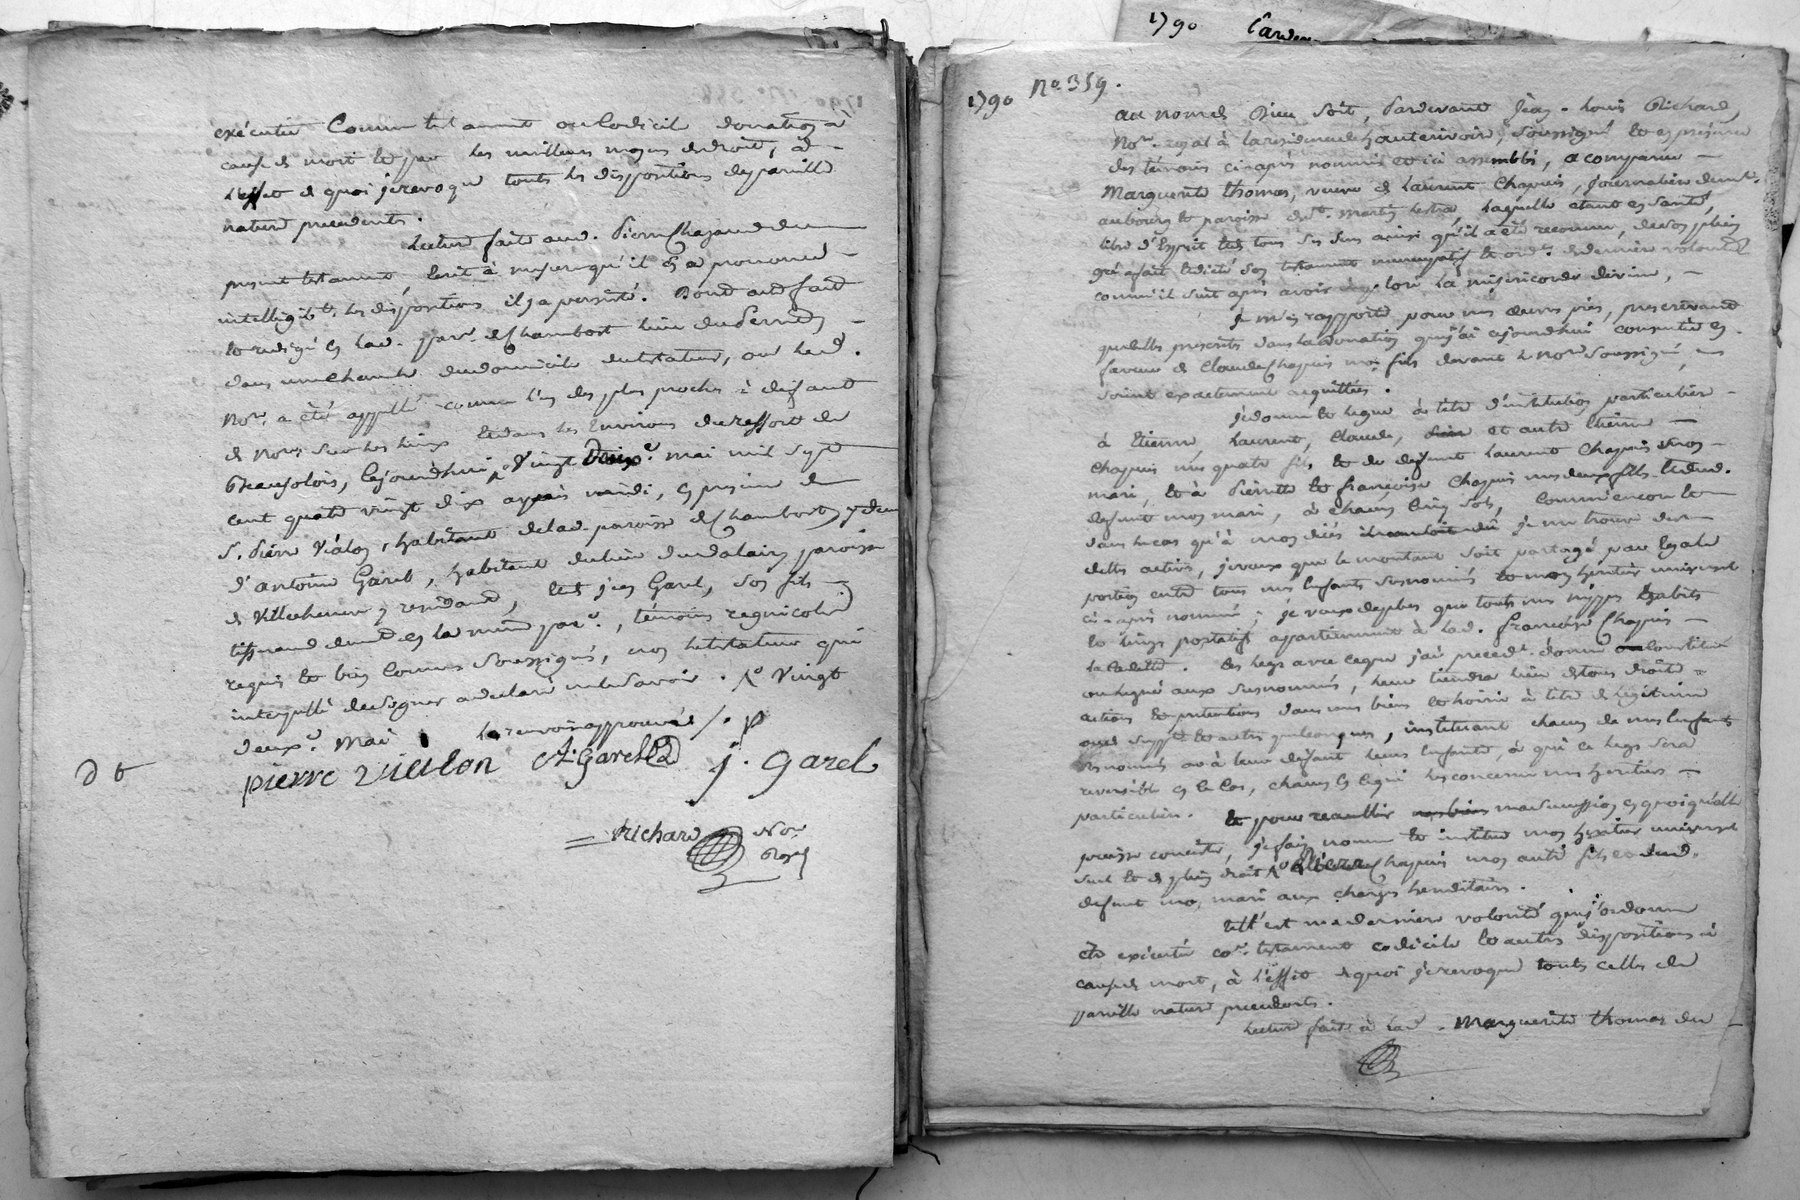 exécuté Comme testament ou Codicil donation à
cause de mort et par les meilleurs moyens de droit, à
l'effet de quoi je revoque touts les dispositions de pareille
nature precedents.
Lecture faite aud. Pierre Chazaud du
present testament, écrit à mesure qu'il en a prononcé
intelligiblt. les dispositions il y a persisté. Dont acte fait
et redigé en lad. parr. de Chambost lieu du Perret
dans une Chambre du domicile du testateur, où led.
Nore. a été appellé comme l'un des plus proches à defaut
de Nore. sur les lieux et dans les Environs du ressort de
Beaujolois, Cejourdhui, Vingt Deuxe. mai mil sept
cent quatre vingt dix après midi, en presence de
Sr. Pierre Vialon, habitant de lad. paroisse de Chambost, et de
d'antoine Garel, habitant du lieu du paroisse
de Villechenève y rendant, et de jean Garel, son fils
tisserand demt. en la meme parr., témoins
requis et bien Connus Soussignés, non le testateur qui
interpellé de signer a declaré ne le savoir. Vingt
deuxe. Mai le renvoi approuvé
pierre vialon At. Garel j. garel
D t
Richard Nore.
Royal
1790 Carden
1790 No. 359.
Au nom de Dieu Soit, Pardevant Jean-Louis Richard,
Nore. royal à la residence de hauterivoire, Soussigné et en présence
des témoins ci après nommés et ici assemblés, a comparue
Marguerite thomas, veuve de Laurent Chapuis, journaliere demt.
au bourg et paroisse de St. Martin Lestra, Laquelle étant en Santé,
libre d'Esprit et de tous ses Sens ainsi qu'il a été reconnu, de son plein
gré a fait et dicté son testament nuncupatif et ordce. de derniere volonté
comme il suit après avoir imploré la misericorde divine,
Je m'en rapporte pour mes œuvres pies,
quelles prescrits dans la donation que j'ai cejourdhui consentie en
faveur de Claude Chapuis mon fils devant le Nore. Soussigné,
soient exactement aquittés.
Je donne et legue à titre d'institution particuliere
à Etienne Laurent, Claude, et autre Etienne
Chapuis mes quatre fils et de defunt Laurent Chapuis mon
mari, et à Pierrette et françoise Chapuis mes deux filles et dud.
defunt mon mari, à chacun Cinq Sols, comme encore et
dans le cas qu'à mon décès il me soit dû je me trouve des
dettes actives, je veux que le montant soit partagé par Egale
portion entre tous mes Enfants susnommés et mon héritier universel
ci-après nommé; je veux de plus que touts mes nippes habits
et linges portatifs appartiennent à lad. françoise Chapuis
la cadette. Ces legs avec ce que j'ai precedt. donné ou Constitué
ou legué aux susnommés, leur tiendra lieu de tous droits
actions et pretentions dans mes biens et hoirie à titre de legitime
ou de supplt. et autres quelconques, instituant chacun de mes Enfants
susnommés ou à leur defaut leurs Enfants, à qui ce legs sera
reversible en ce Cas, chacun en ce qui les concerne mes heritiers
particuliers. Et pour recueillir ma succession en quoi qu'elle
puisse consister, je fais nomme et institue mon heritier universel
seul et de plein droit Pierre Chapuis mon autre fils et dud.
defunt mon mari aux charges hereditaires.
Telle est ma derniere volonté que j'ordonne
etre executée coe. testament codicile et autres dispositions à
cause de mort, à l'effet de quoi je revoque touts celles de
pareille nature precedents.
Lecture faite à lad. Marguerite thomas du